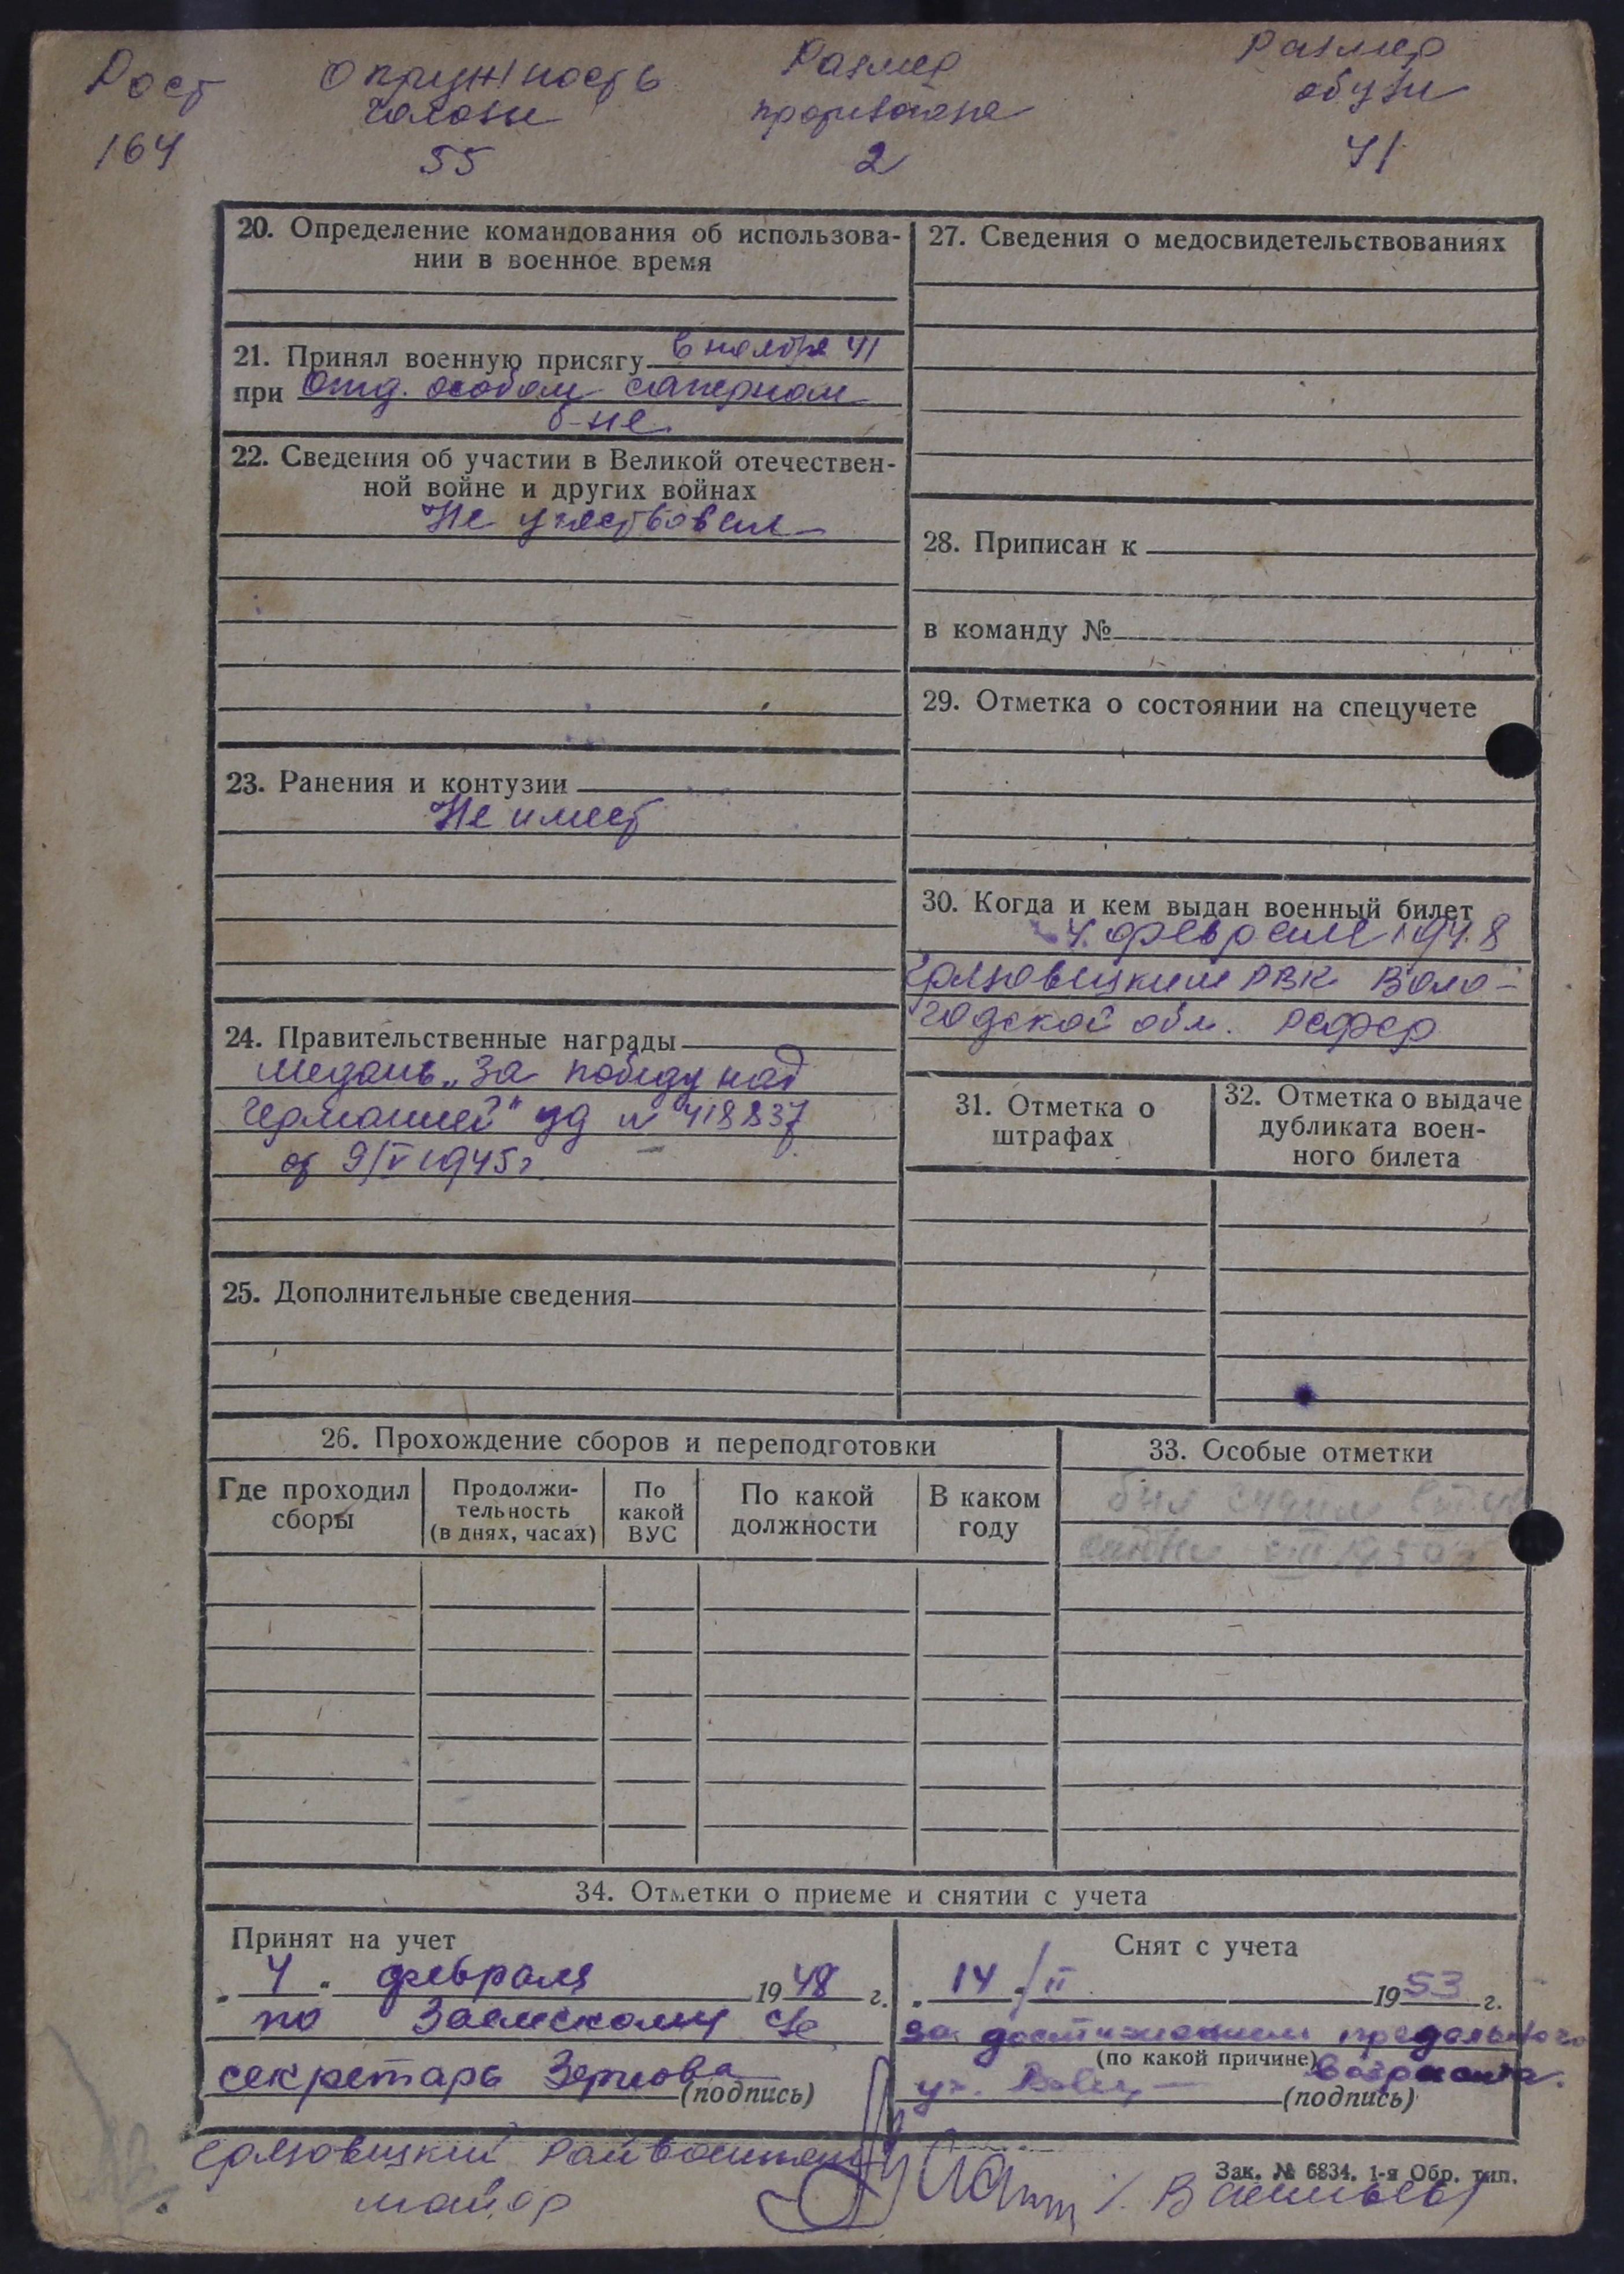 Рост Окружность головы Размер противогаза Размер обуви
164 55 2 41
20. Определение командования об использова-
нии в военное время
21. Принял военную присягу в ноябре 41
при Отд. особом саперном
б-не.
22. Сведения об участии в Великой отечествен-
ной войне и других войнах
Не участвовал
23. Ранения и контузии
Не имеет
24. Правительственные награды
медаль „За победу над
Германией" уд № 418837
от 9/V 1945 г.
25. Дополнительные сведения
27. Сведения о медосвидетельствованиях
28. Приписан к
в команду №
29. Отметка о состоянии на спецучете
30. Когда и кем выдан военный билет
4 феврале 1948
Грязовецким РВК Воло-
годской обл. РСФСР
31. Отметка о
штрафах
32. Отметка о выдаче
дубликата воен-
ного билета
26. Прохождение сборов и переподготовки
Где проходил
сборы
Продолжи-
тельность
(в днях, часах)
По
какой
ВУС
По какой
должности
В каком
году
33. Особые отметки
был
1950 г
34. Отметки о приеме и снятии с учета
Принят на учет
„4" февраля 1948 г.
по Заемскому с/с
секретарь Зернова
(подпись)
Снят с учета
„14"/II 1953 г.
за достижением предельного
(по какой причине) возраста.
(подпись)
Грязовецкий Райвоенком
майор /Васильев/
Зак. № 6834. 1-я Обр. тип.